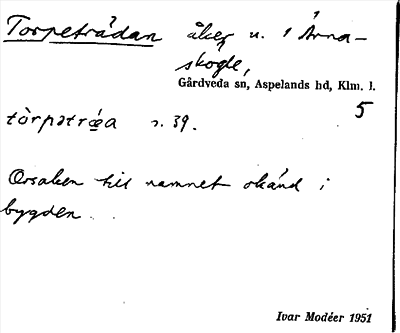 Torpeträdan åker n. 1 Årna-
skogle,
Gårdveda sn, Aspelands hd, Klm. l.
5
tòrpatrǿa s. 39.
Orsaken till namnet okänd i
bygden.
Ivar Modéer 1951